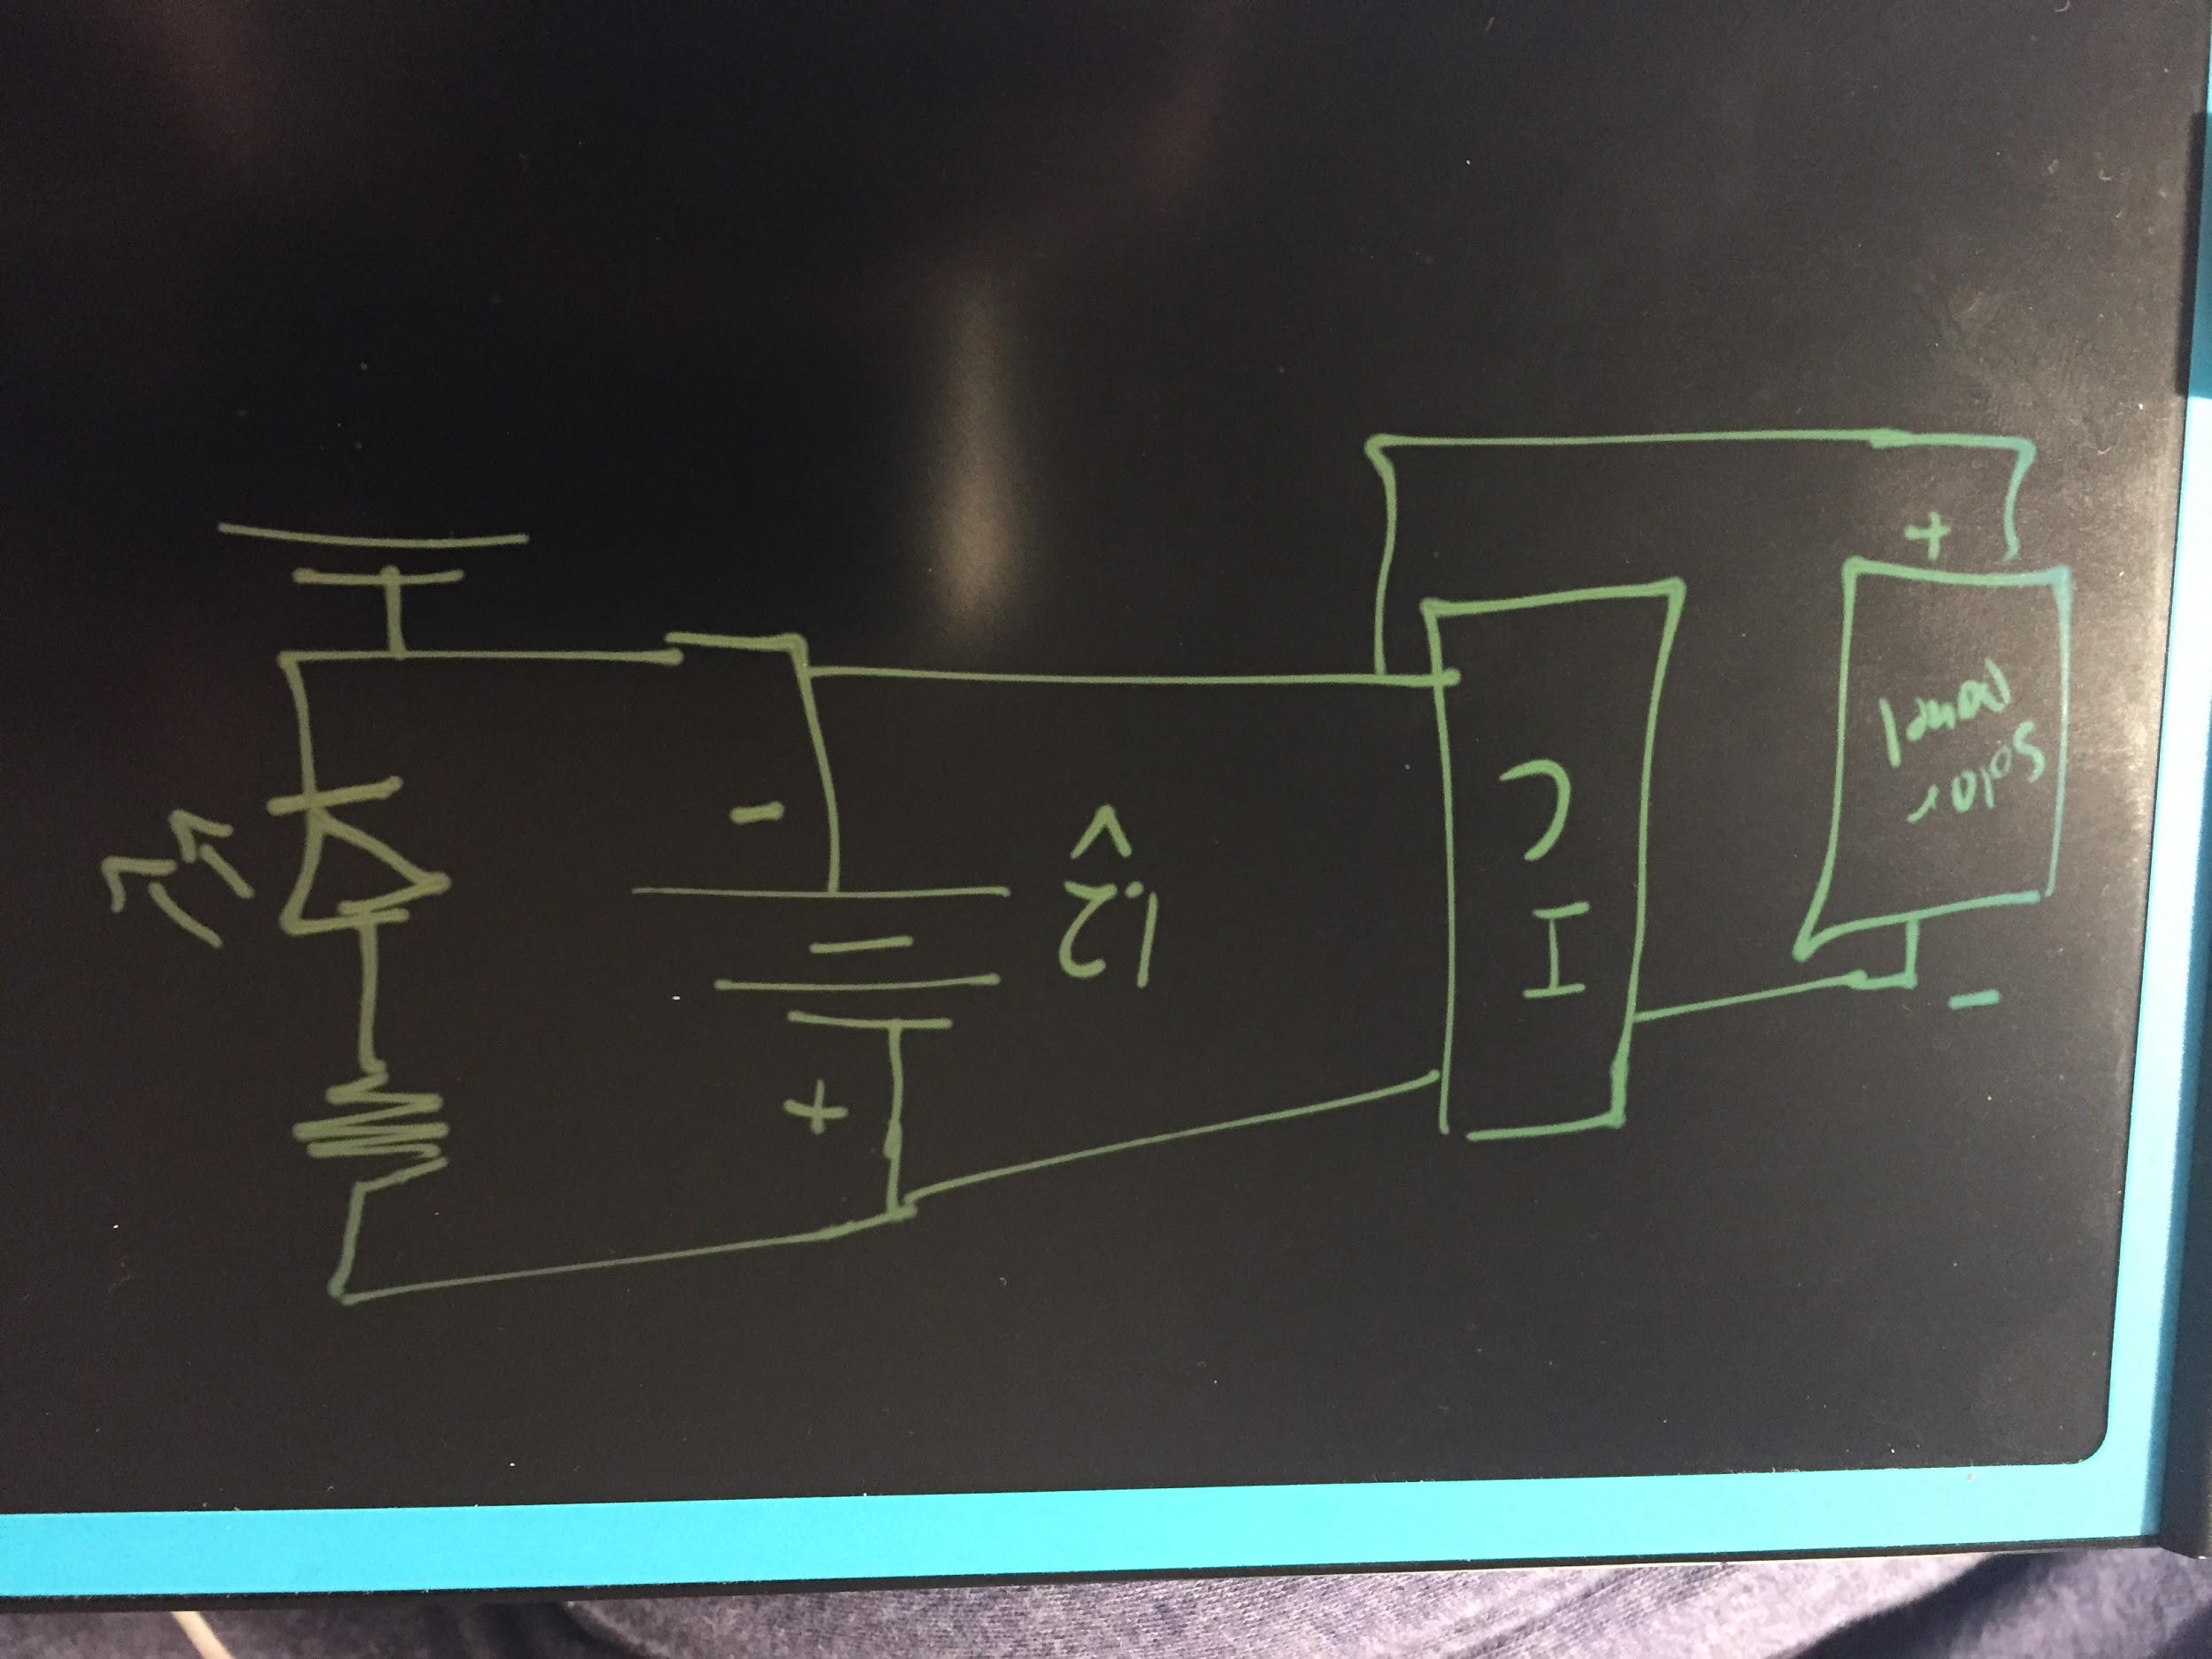 -
Solar
Panel
+
I
C
+
1.2
V
-